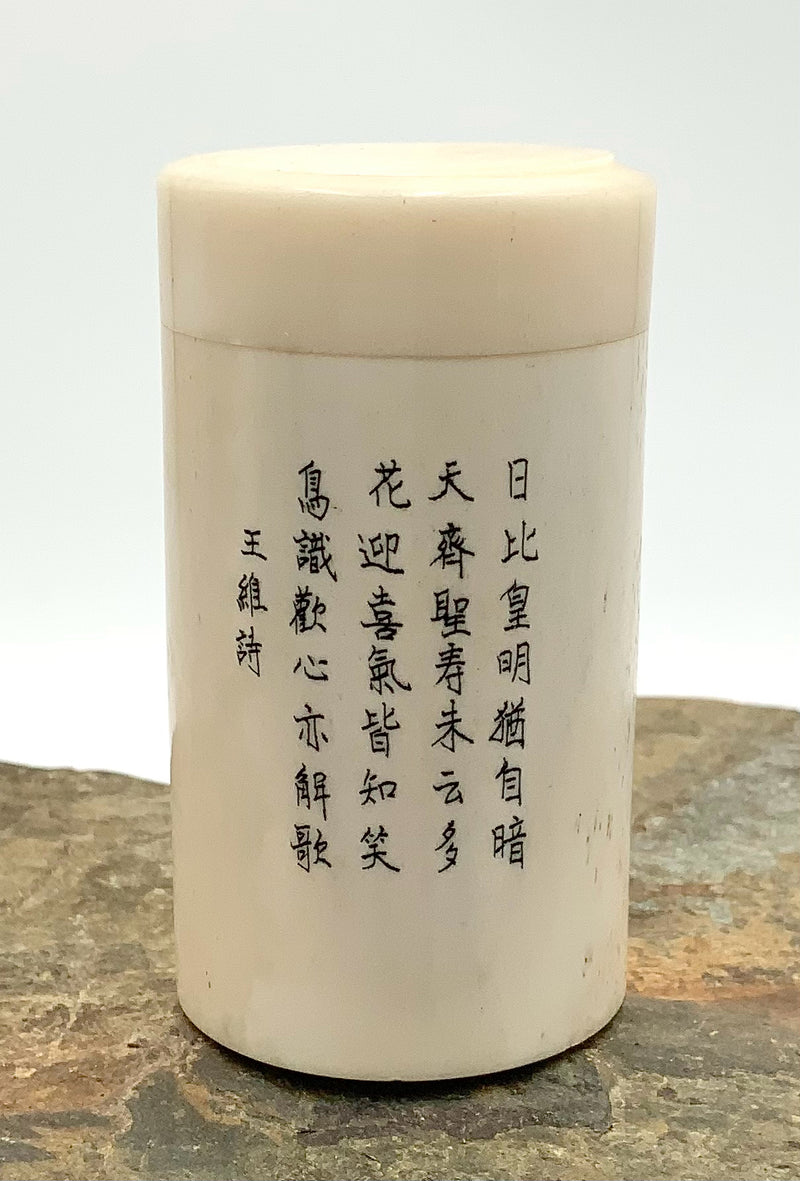 日比皇明猶自暗
天齊聖寿未云多
花迎喜氣皆知笑
鳥識歡心亦解歌
王維詩